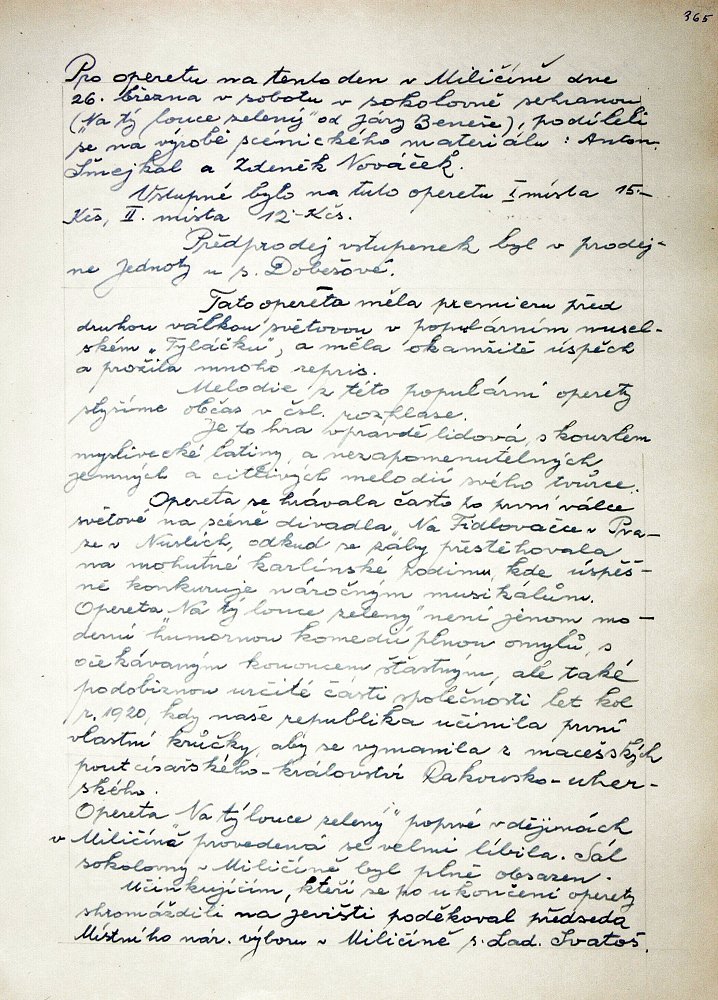 365
Pro operetu na tento den v Miličíně dne
26. března v sobotu v sokolovně sehranou
(„Na tý louce zelený" od Járy Beneše), podíleli
se na výrobě scénického materiálu: Anton.
Šmejkal a Zdeněk Nováček.
Vstupné bylo na tuto operetu I místa 15.-
Kčs, II. místa 12.- Kčs.
Předprodej vstupenek byl v prodej-
ně Jednoty u s. Dobešové.
Tato opereta měla premieru před
druhou válkou světovou v populárním nusel-
ském „Tyláčku", a měla okamžitě úspěch
a prožila mnoho repris.
Melodie z této populární operety
slyšíme občas v čsl. rozhlase.
Je to hra vpravdě lidová, s kouzlem
myslivecké latiny a nezapomenutelných
jemných a citlivých melodií svého tvůrce.
Opereta se hrávala často po první válce
světové na scéně divadla „Na Fidlovačce v Pra-
ze v Nuslích, odkud se záhy přestěhovala
na mohutné karlínské podium, kde úspěš-
ně konkuruje náročným musikálům.
Opereta Na tý louce zelený" není jenom mo-
derní humornou komedií plnou omylů, s
očekávaným kononcem šťastným, ale také
podobiznou určité části společnosti let kol
r. 1920, kdy naše republika učinila první
vlastní krůčky, aby se vymanila z macešských
pout císařského-království Rakousko-uher-
ského.
Opereta Na tý louce zelený" poprvé v dějinách
v Miličíně provedená se velmi líbila. Sál
sokolovny v Miličíně byl plně obsazen.
Učinkujícím, kteří se po ukončení operety
shromáždili na jevišti poděkoval předseda
Místního nár. výboru v Miličíně s. Lad. Svatoš.